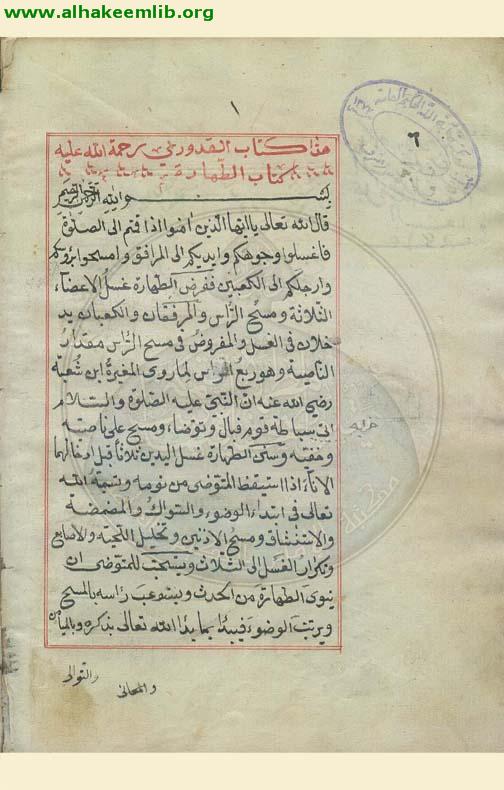 www.alhakeemlib.org
١
٦
هذا كتاب القدوري رحمة الله عليه
كتاب الطهارة
بسم الله الرحمن الرحيم
قال الله تعالى ياايها الذين امنوا اذا قمتم الى الصلوة
فاغسلوا وجوهكم وايديكم الى المرافق وامسحوا برؤسكم
وارجلكم الى الكعبين ففرض الطهارة غسل الاعضاء
الثلاثة ومسح الرأس والمرفقان والكعبان يد
خلان في الغسل والمفروض في مسح الرأس مقدار
الناصية وهو ربع الرأس لما روى المغيرة ابن شعبة
رضي الله عنه ان النبي عليه الصلوة والسلام
اتى سباطة قوم فبال وتوضاء ومسح على ناصيته
وخفيه وسنن الطهارة غسل اليدين ثلاثا قبل ادخالهما
الاناء اذا استيقظ المتوضى من نومه وتسمية الله
تعالى في ابتداء الوضوء والسواك والمضمضة
والاستنشاق ومسح الاذنين وتخليل اللحية والاصابع
وتكرار الغسل الى الثلاث ويستحب للمتوضى ان
ينوى الطهارة من الحدث ويستوعب راسه بالمسح
ويرتب الوضوء فيبدا بما بدا الله تعالى بذكره وبالميامن
والتوالى